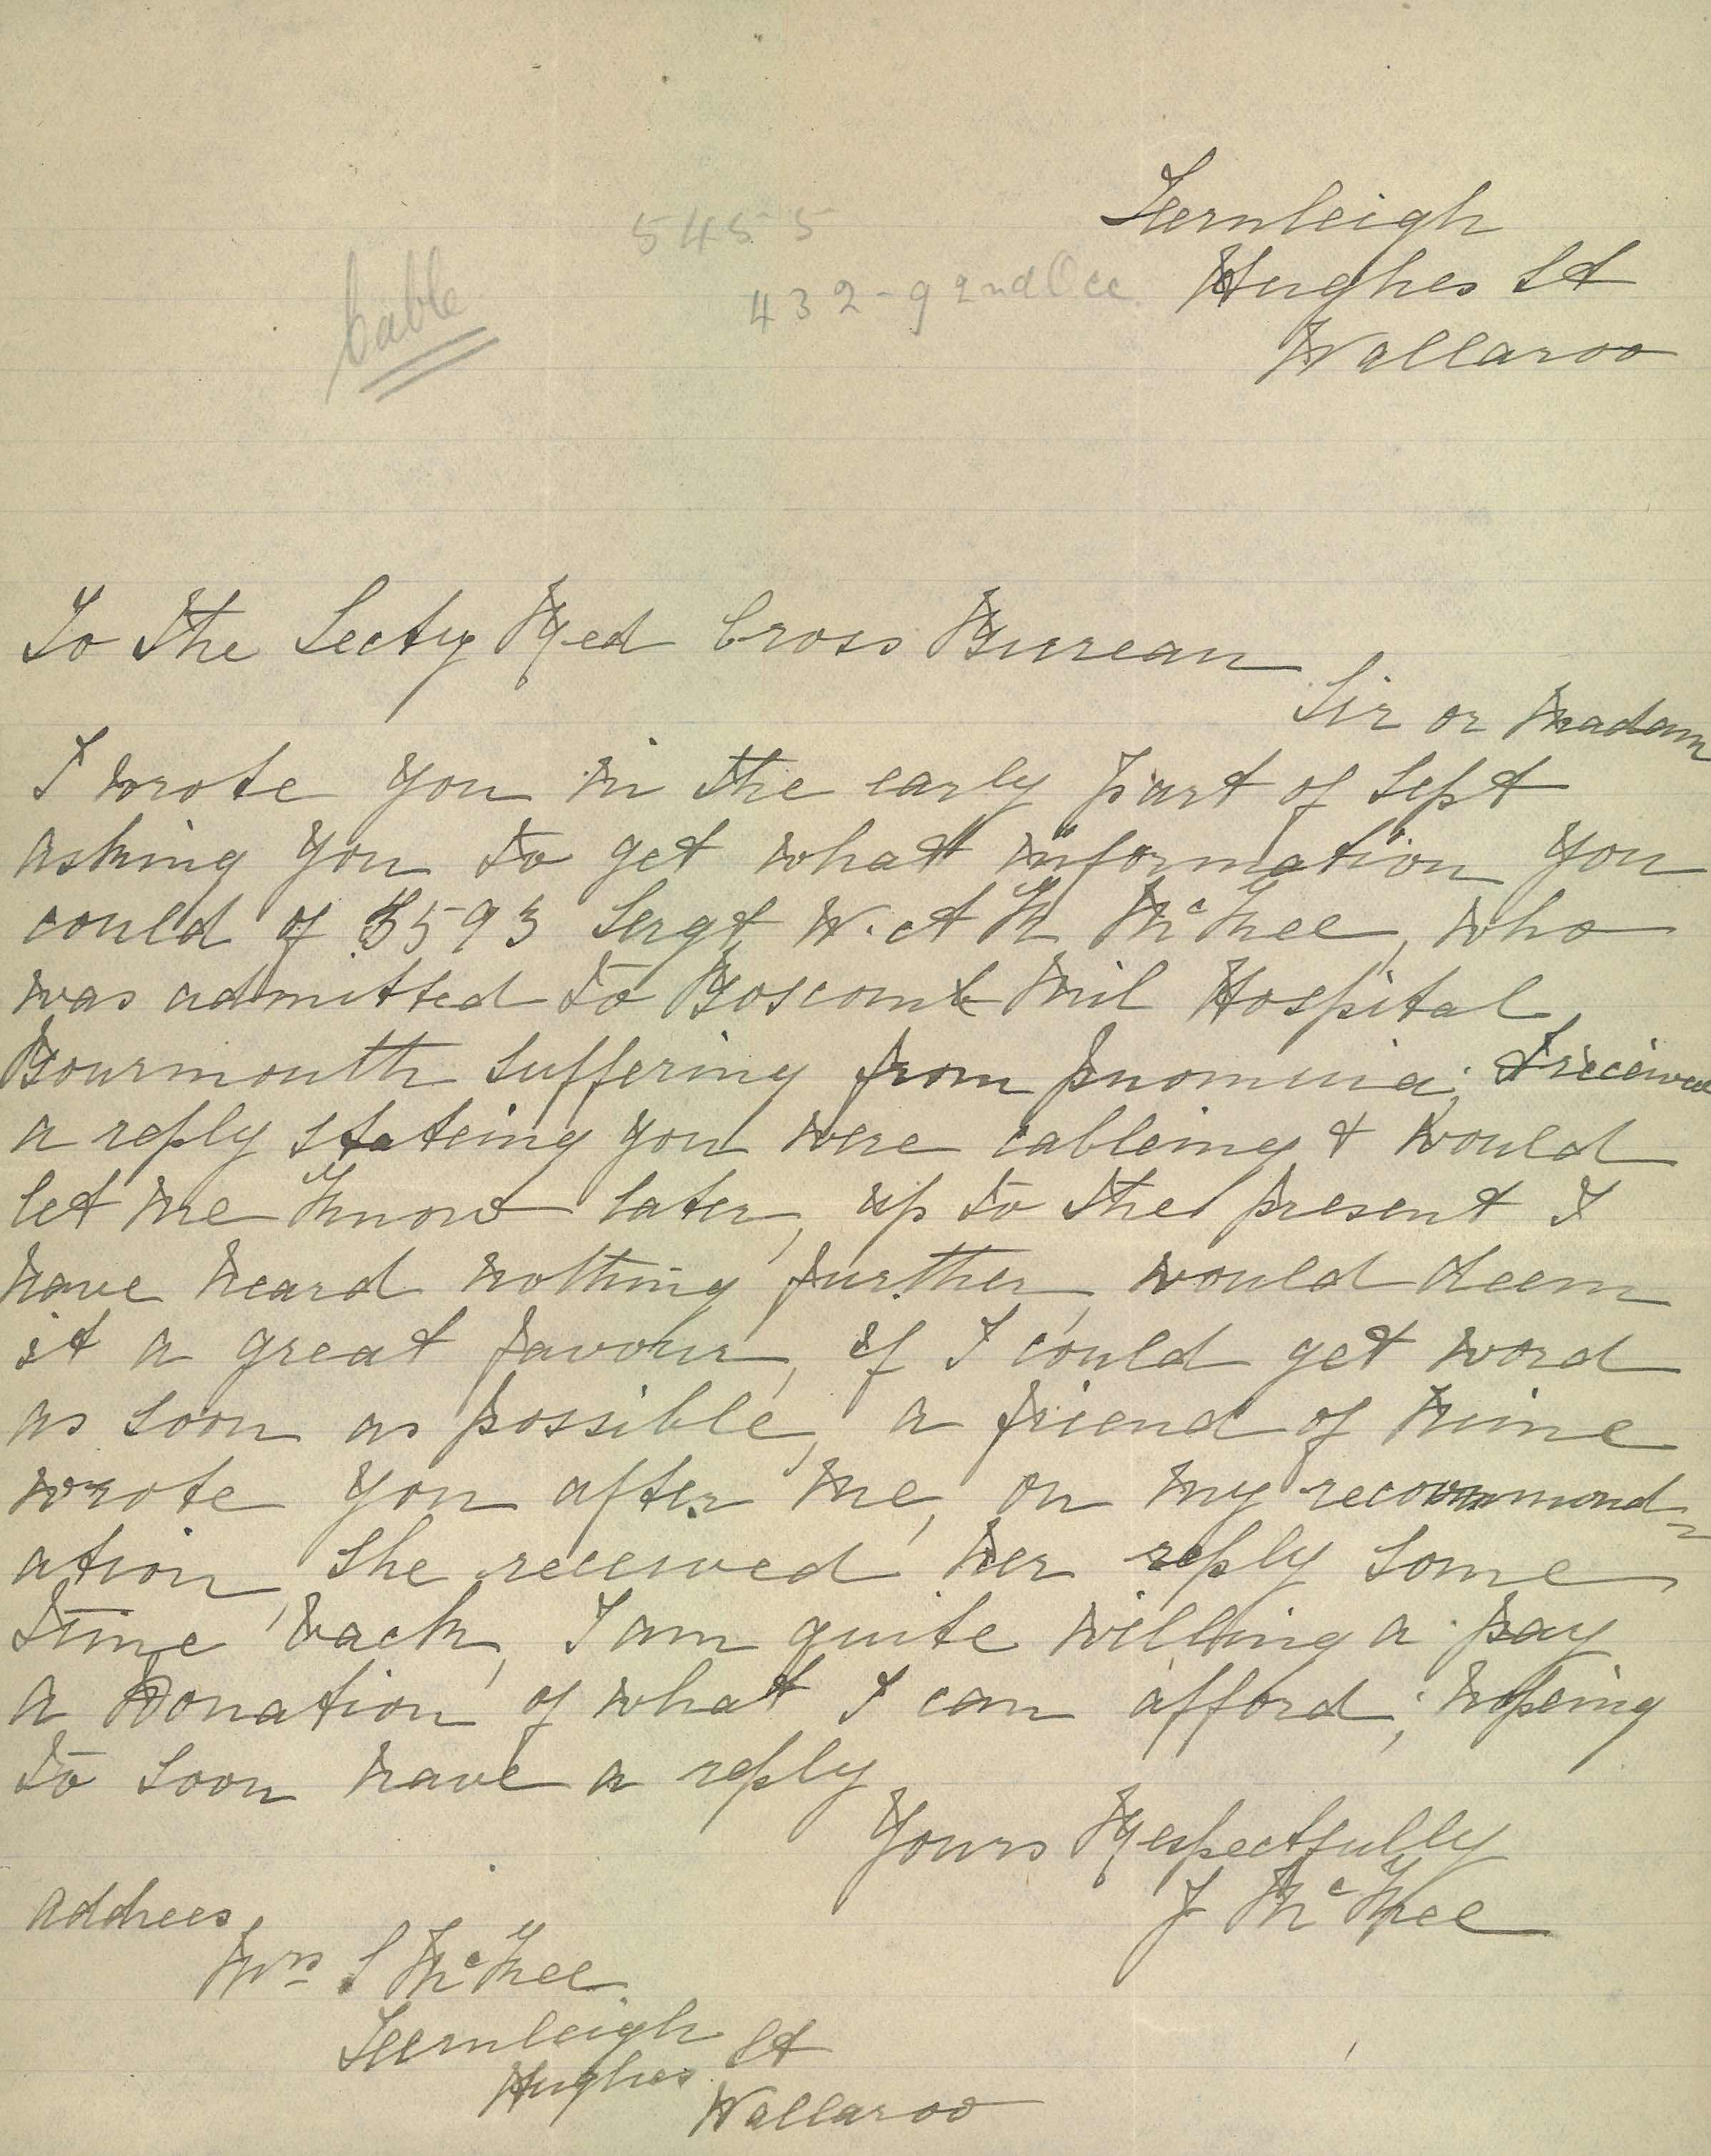 Fernleigh
5455
Hughes St
432-9 2nd Occ.
cable
Wallaroo
To the Secty Red Cross Bureau
Sir or Madam
I wrote you in the early part of Sept
asking you to get what information you
could of 3593 Sergt W. A K McKee, who
was admitted to Boscomb Mil Hospital,
Bourmouth suffering from pnomina; I received
a reply stateing you were cableing & would
let me know later, up to the present I
have heard nothing further, would deem
it a great favour, if I could get word
as soon as possible, a friend of mine
wrote you after me, on my recommend=
ation, she received her reply some
time back, I am quite willing a pay
a Donation of what I can afford; hopeing
to soon have a reply
Yours Respectfully
J McKee
Addrees,
Mrs S McKee
Fernleigh
Hughes St
Wallaroo